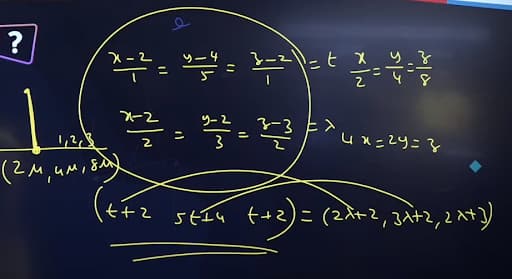 ?
l
x-2/1 = y-4/5 = z-2/1 = t x/2 = y/4 = z/8
x-2/2 = y-2/3 = z-3/2 = λ 4x=2y=z
1,2,3
(2μ,4μ,8μ)
(t+2 5t+4 t+2) = (2λ+2, 3λ+2, 2λ+3)